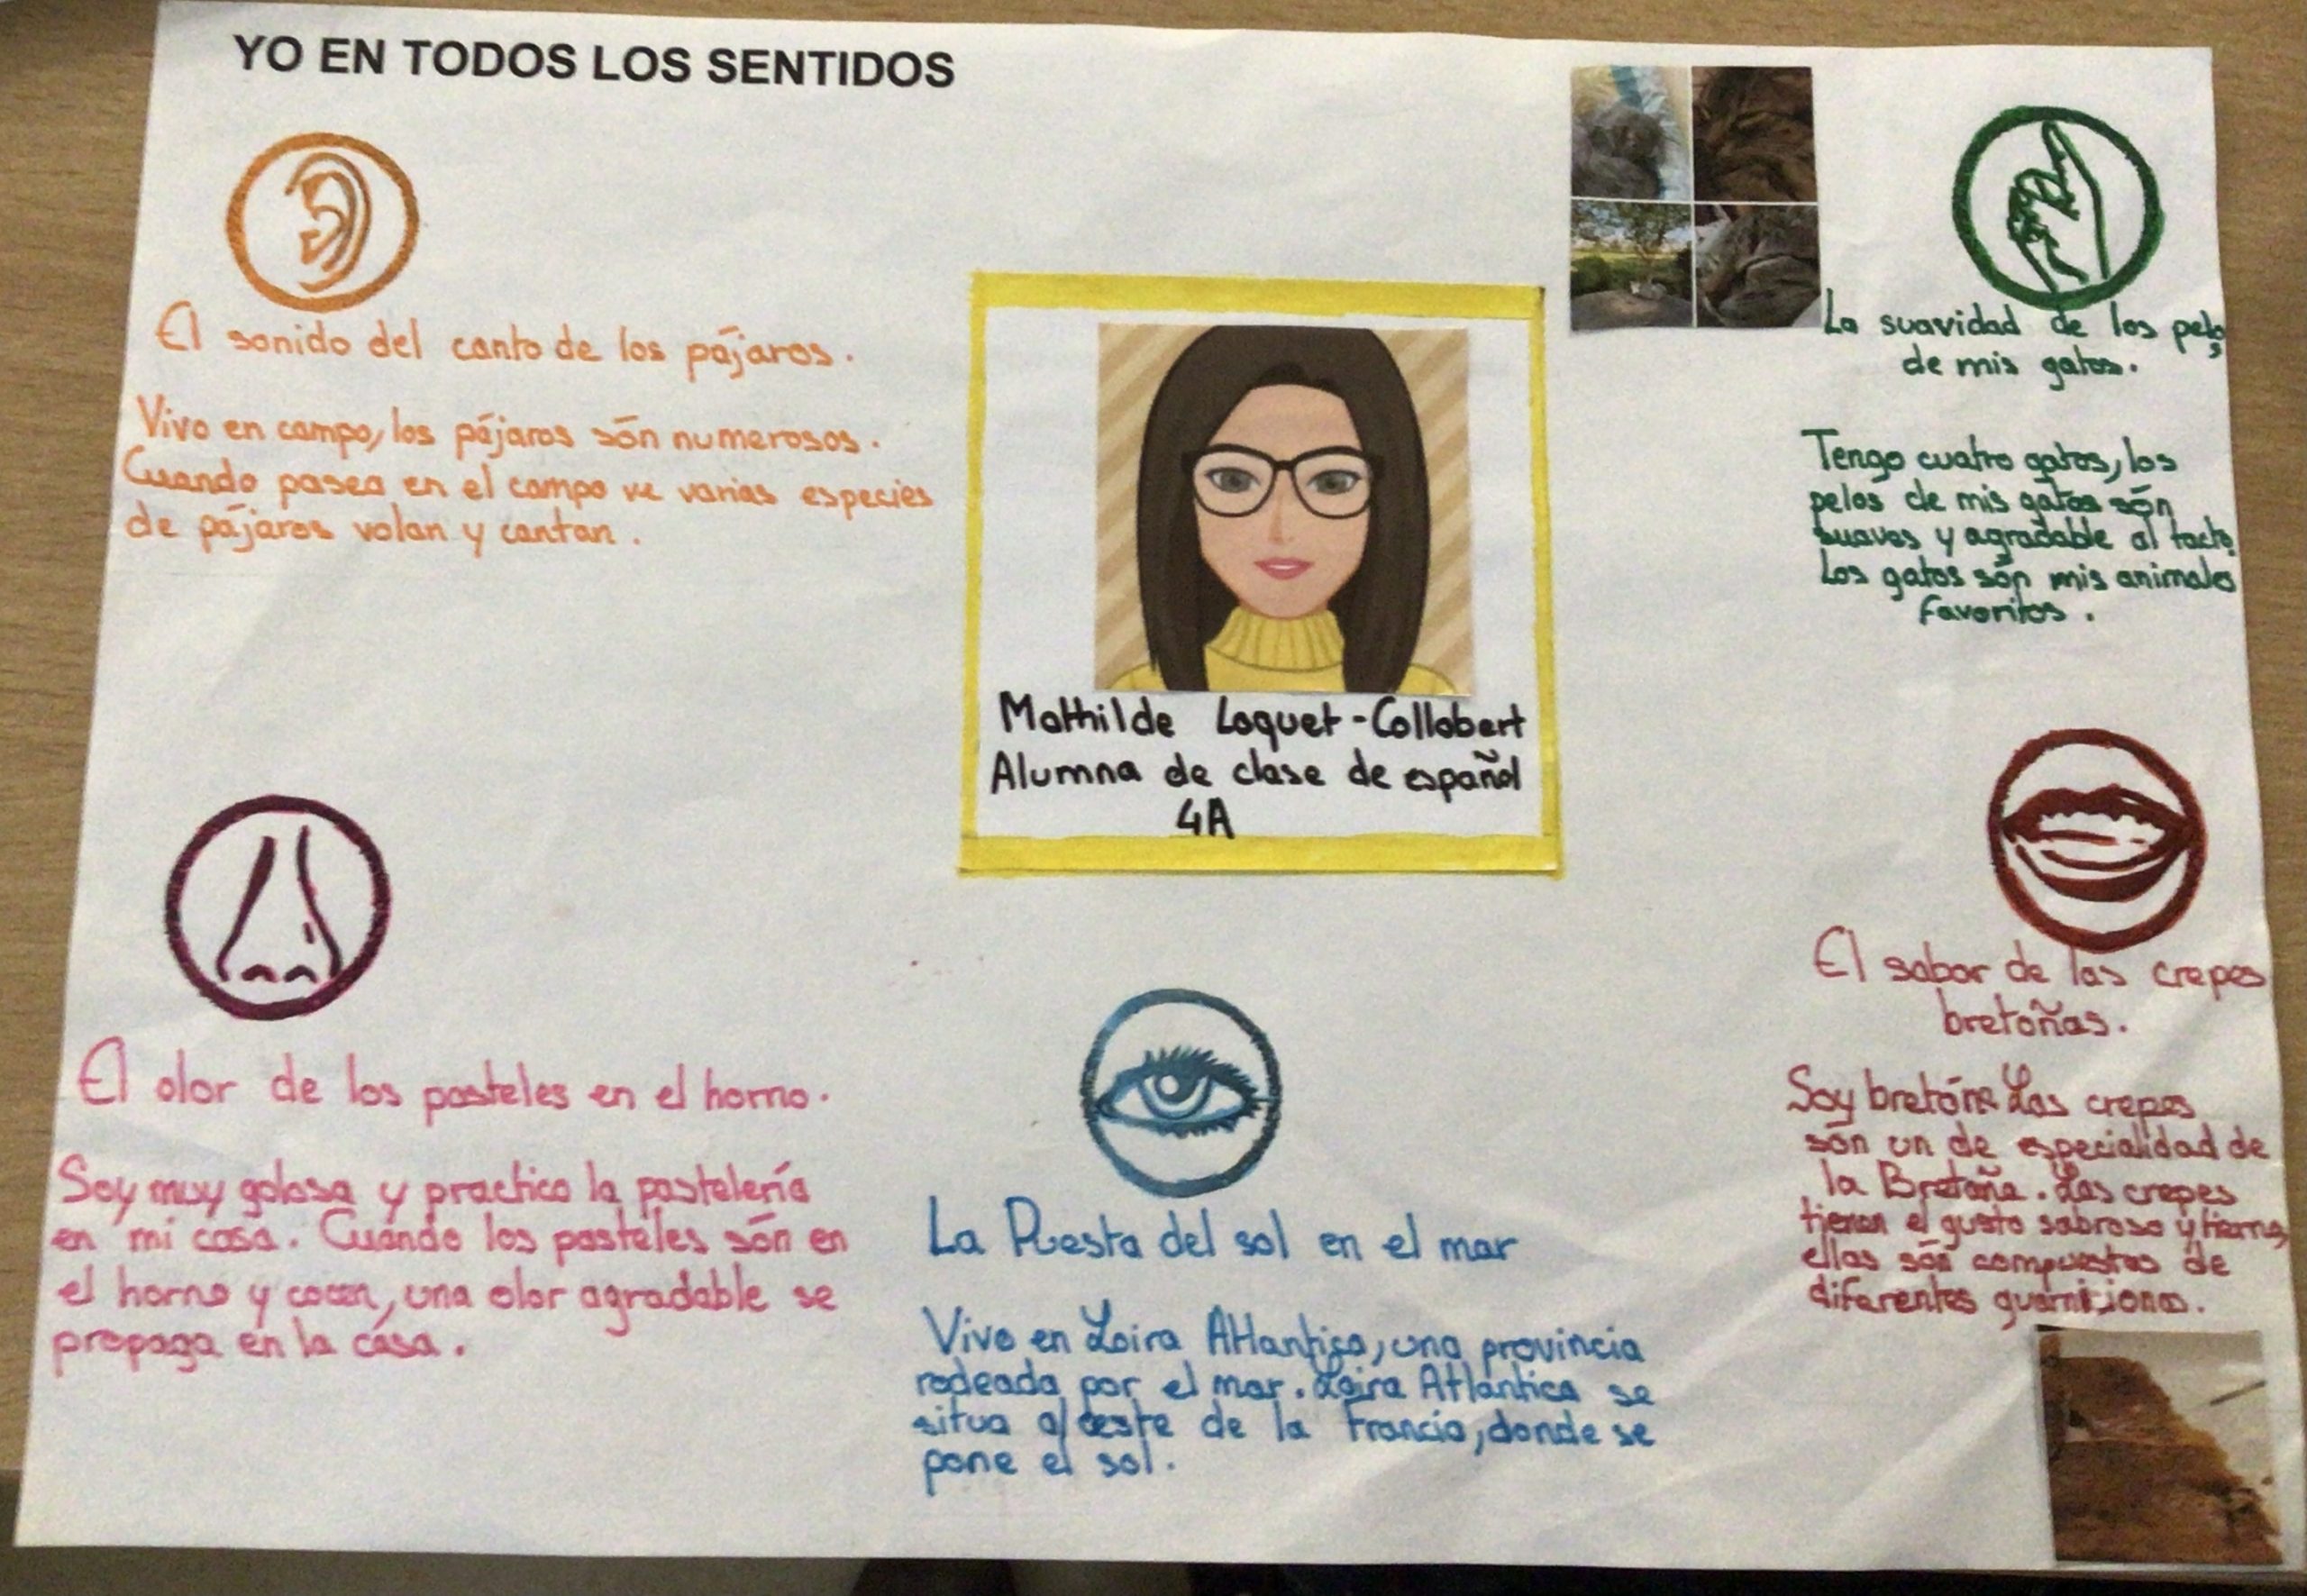 YO EN TODOS LOS SENTIDOS
El sonido del canto de los pájaros.
Vivo en campo, los pájaros són numerosos.
Cuando paseo en el campo ve varias especies
de pájaros volan y cantan.
La suavidad de los pelos
de mis gatos.
Tengo cuatro gatos, los
pelos de mis gatos són
suaves y agradable al tacto.
Los gatos són mis animales
favoritos.
Mathilde Loquet-Collobert
Alumna de clase de español
4A
El olor de los pasteles en el horno.
Soy muy golosa y practico la pastelería
en mi casa. Cuándo los pasteles són en
el horno y cocen, una olor agradable se
propaga en la cása.
La Puesta del sol en el mar
Vivo en Loira Atlantica, una provincia
rodeada por el mar. Loira Atlántica se
situa al oeste de la Francia, donde se
pone el sol.
El sabor de las crepes
bretoñas.
Soy bretóna Las crepes
són un de especialidad de
la Bretaña. Las crepes
tienen el gusto sabroso y tierno,
ellas són compuestas de
diferentes guarniciones.